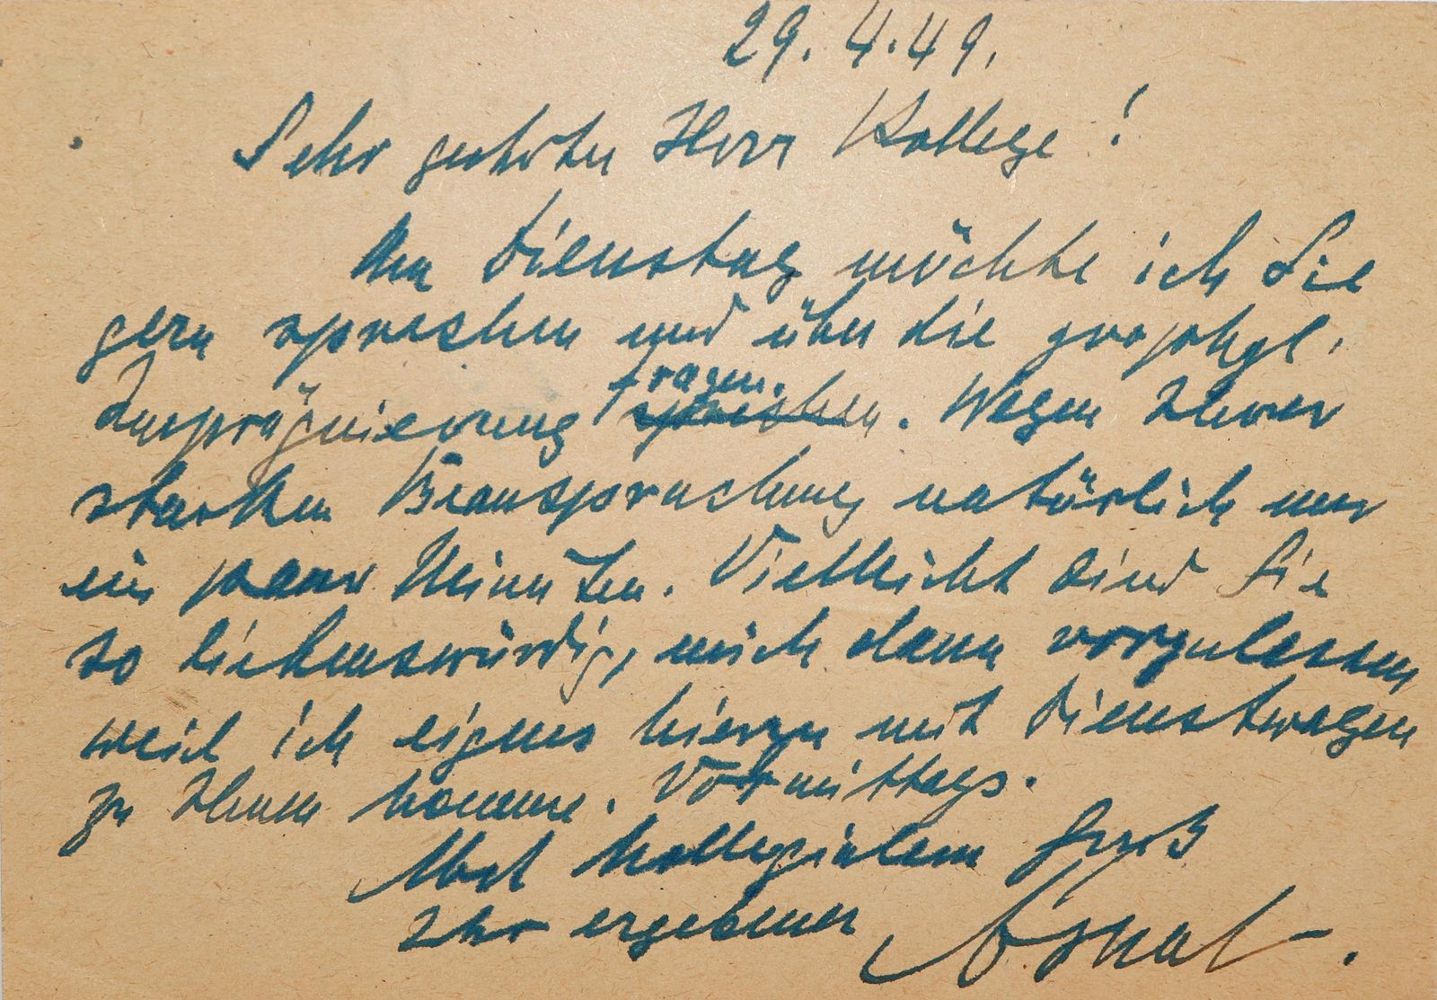 29. 4. 49.
Sehr geehrter Herr Kollege!
Am Dienstag möchte ich Sie
gern sprechen und über die
Imprägnierung fragen. Wegen Ihrer
starken Beanspruchung natürlich nur
ein paar Minuten. Vielleicht sind Sie
so liebenswürdig, mich dann vorzulassen
weil ich eigens hierzu mit Dienstwagen
zu Ihnen komme. Vormittags.
Mit kollegialem Gruß
Ihr ergebener